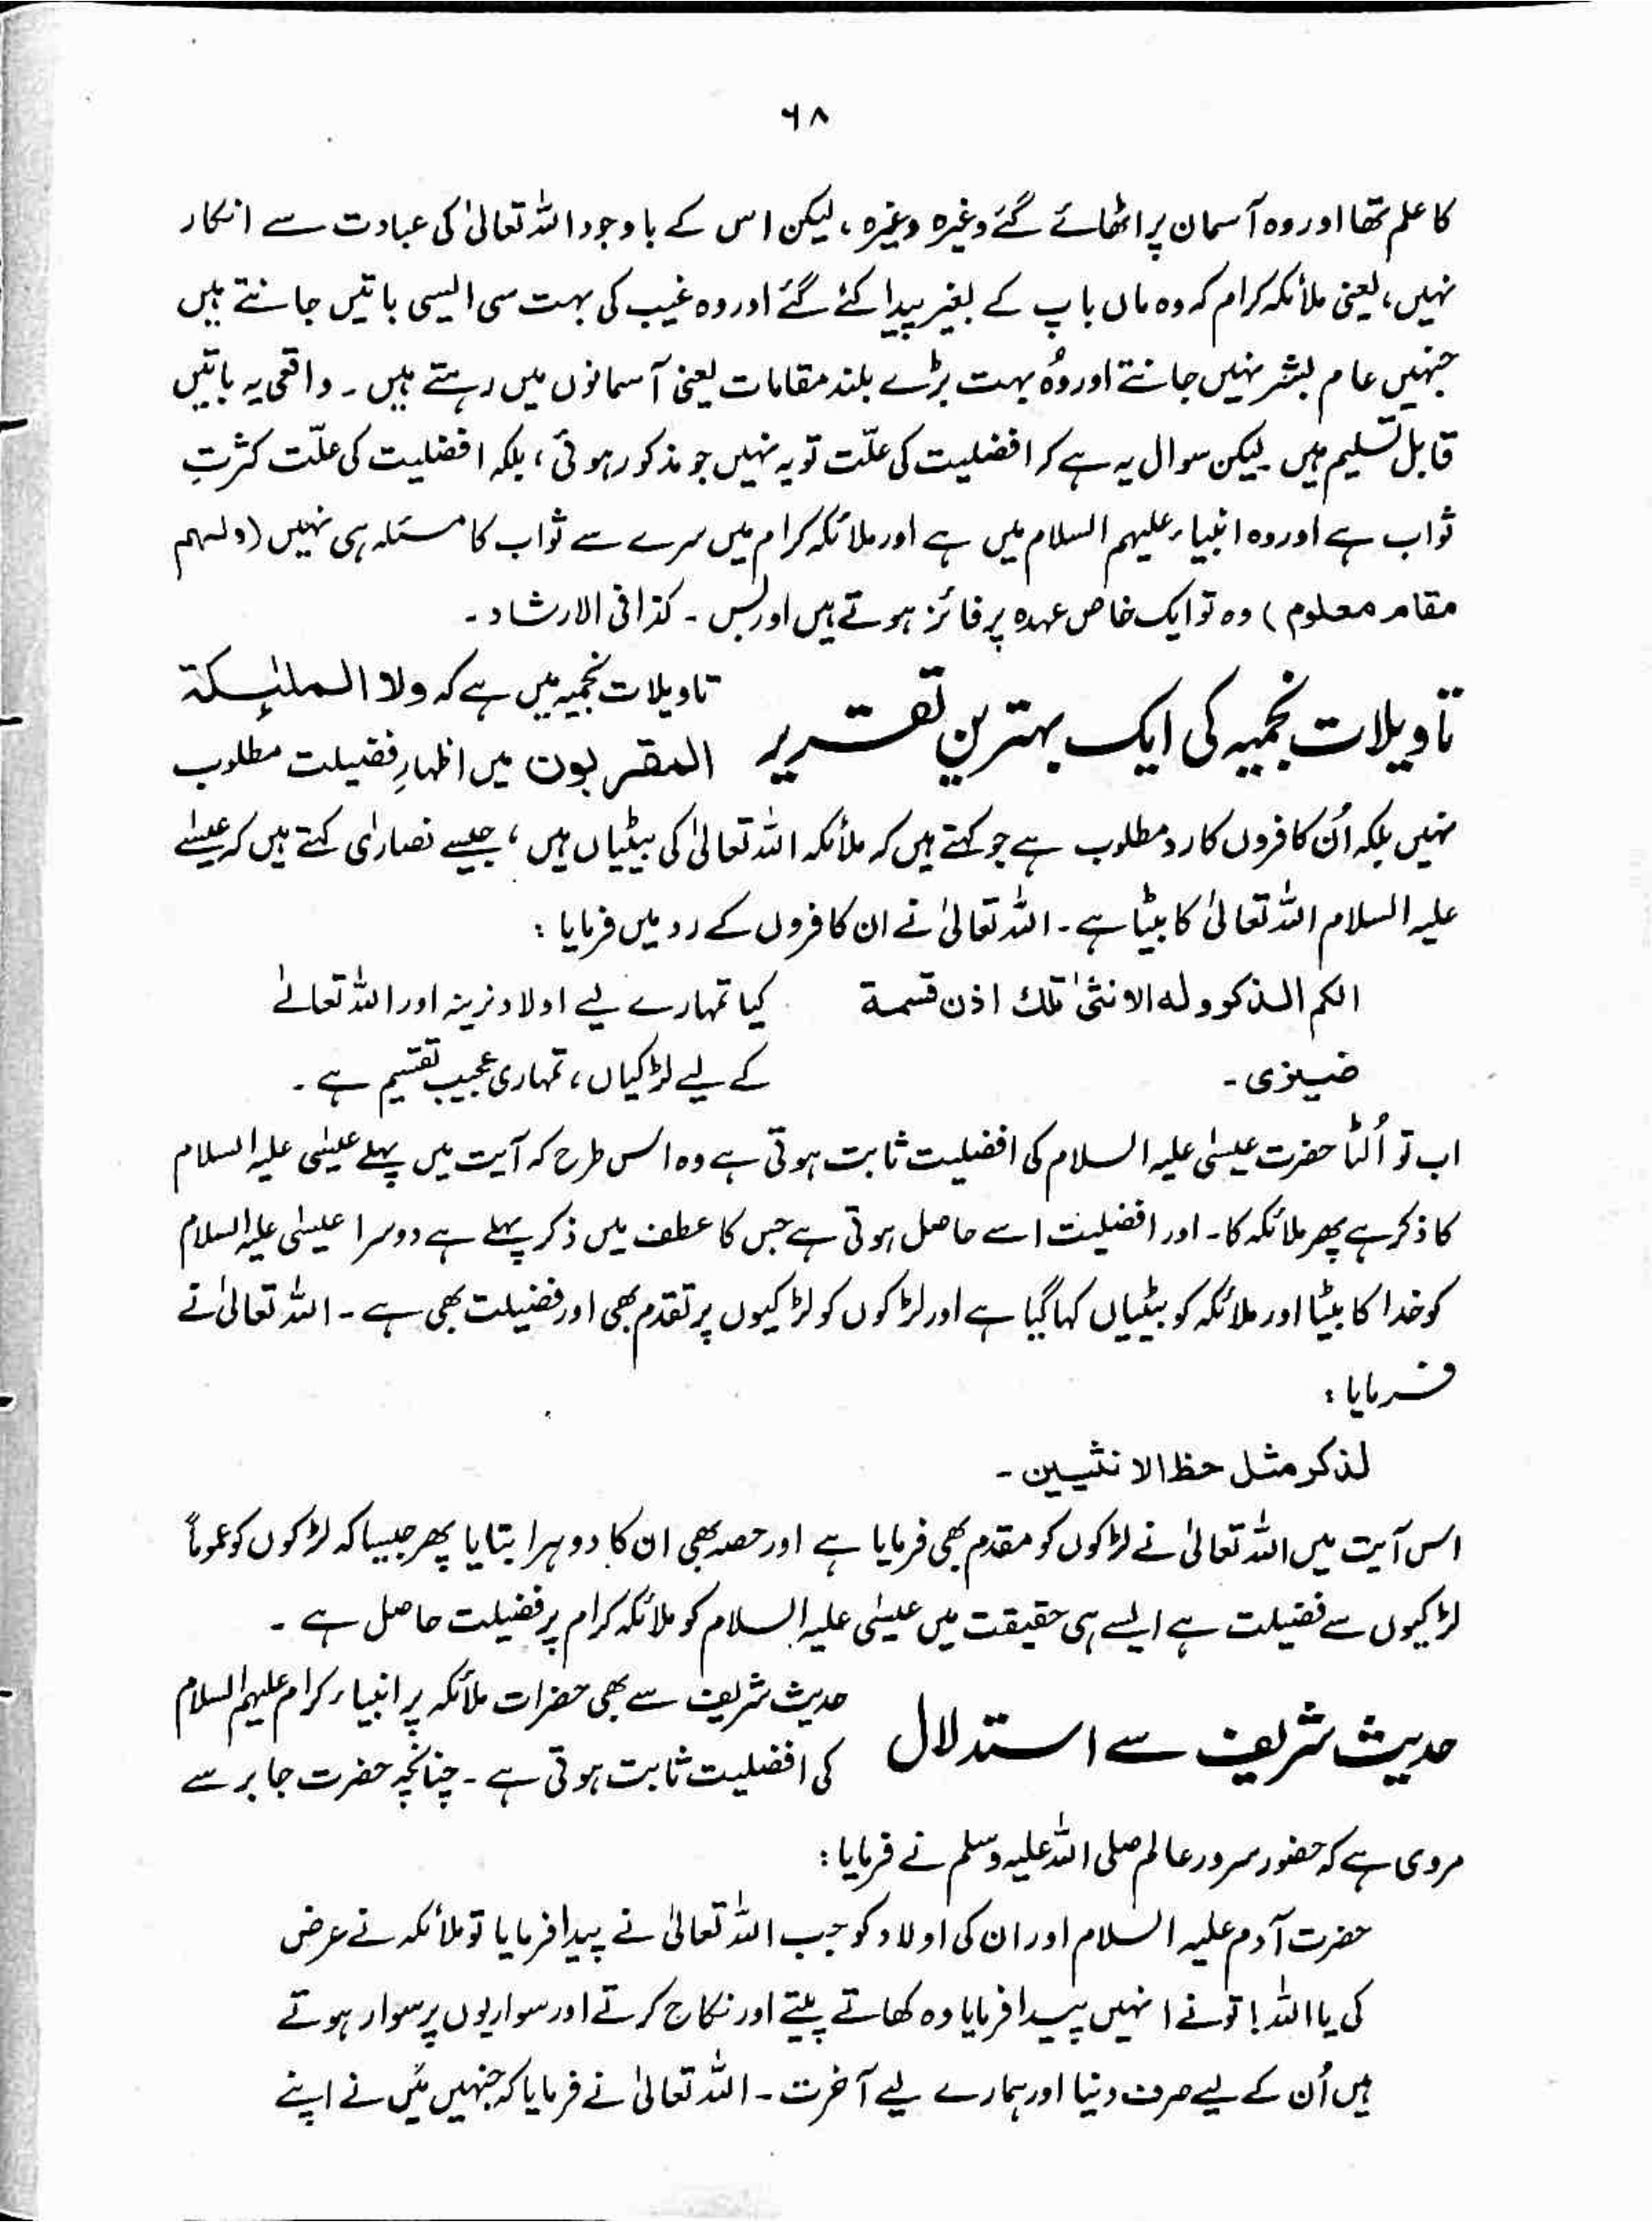 ۶۸
کا علم تھا اور وہ آسمان پر اٹھائے گئے وغیرہ وغیرہ ، لیکن اس کے باوجود اللہ تعالیٰ کی عبادت سے انکار
نہیں ، یعنی ملائکہ کرام کہ وہ ماں باپ کے بغیر پیدا کئے گئے اور وہ غیب کی بہت سی ایسی باتیں جانتے ہیں
جنہیں عام بشر نہیں جانتے اور وُہ بہت بڑے بلند مقامات یعنی آسمانوں میں رہتے ہیں ۔ واقعی یہ باتیں
قابل تسلیم ہیں لیکن سوال یہ ہے کہ افضلیت کی علّت تو یہ نہیں جو مذکور ہوئی ، بلکہ افضلیت کی علّت کثرتِ
ثواب ہے اور وہ انبیاء علیہم السلام میں ہے اور ملائکہ کرام میں سرے سے ثواب کا مسئلہ ہی نہیں (ولہم
مقام معلوم) وہ تو ایک خاص عہدہ پر فائز ہوتے ہیں اور بس ۔ کذا فی الارشاد ۔
تاویلات نجمیہ کی ایک بہترین تقریر
تاویلات نجمیہ میں ہے کہ ولا الملٰئکۃ
المقربون میں اظہارِ فضیلت مطلوب
نہیں بلکہ اُن کافروں کا رد مطلوب ہے جو کہتے ہیں کہ ملائکہ اللہ تعالیٰ کی بیٹیاں ہیں ، جیسے نصارٰی کہتے ہیں کہ عیسےٰ
علیہ السلام اللہ تعالیٰ کا بیٹا ہے ۔ اللہ تعالیٰ نے ان کافروں کے رد میں فرمایا :
الکم الذکو ولہ الانثیٰ تلک اذن قسمۃ
ضیزی ۔
کیا تمہارے لیے اولاد نرینہ اور اللہ تعالےٰ
کے لیے لڑکیاں ، تمہاری عجیب تقسیم ہے ۔
اب تو اُلٹا حضرت عیسٰی علیہ السلام کی افضلیت ثابت ہوتی ہے وہ اس طرح کہ آیت میں پہلے عیسٰی علیہ السلام
کا ذکر ہے پھر ملائکہ کا ۔ اور افضلیت اسے حاصل ہوتی ہے جس کا عطف میں ذکر پہلے ہے دوسرا عیسٰی علیہ السلام
کو خدا کا بیٹا اور ملائکہ کو بیٹیاں کہا گیا ہے اور لڑکوں کو لڑکیوں پر تقدم بھی اور فضیلت بھی ہے ۔ اللہ تعالیٰ نے
فرمایا :
لذکر مثل حظ الانثیین ۔
اس آیت میں اللہ تعالیٰ نے لڑکوں کو مقدم بھی فرمایا ہے اور حصہ بھی ان کا دوہرا بتایا پھر جیسا کہ لڑکوں کو عموماً
لڑکیوں سے فضیلت ہے ایسے ہی حقیقت میں عیسٰی علیہ السلام کو ملائکہ کرام پر فضیلت حاصل ہے ۔
حدیث شریف سے استدلال
حدیث شریف سے بھی حضرات ملائکہ پر انبیاء کرام علیہم السلام
کی افضلیت ثابت ہوتی ہے ۔ چنانچہ حضرت جابر سے
مروی ہے کہ حضور سرور عالم صلی اللہ علیہ وسلم نے فرمایا :
حضرت آدم علیہ السلام اور ان کی اولاد کو جب اللہ تعالیٰ نے پیدا فرمایا تو ملائکہ نے عرض
کی یا اللہ ! تو نے انہیں پیدا فرمایا وہ کھاتے پیتے اور نکاح کرتے اور سواریوں پر سوار ہوتے
ہیں اُن کے لیے صرف دنیا اور ہمارے لیے آخرت ۔ اللہ تعالیٰ نے فرمایا کہ جنہیں مَیں نے اپنے